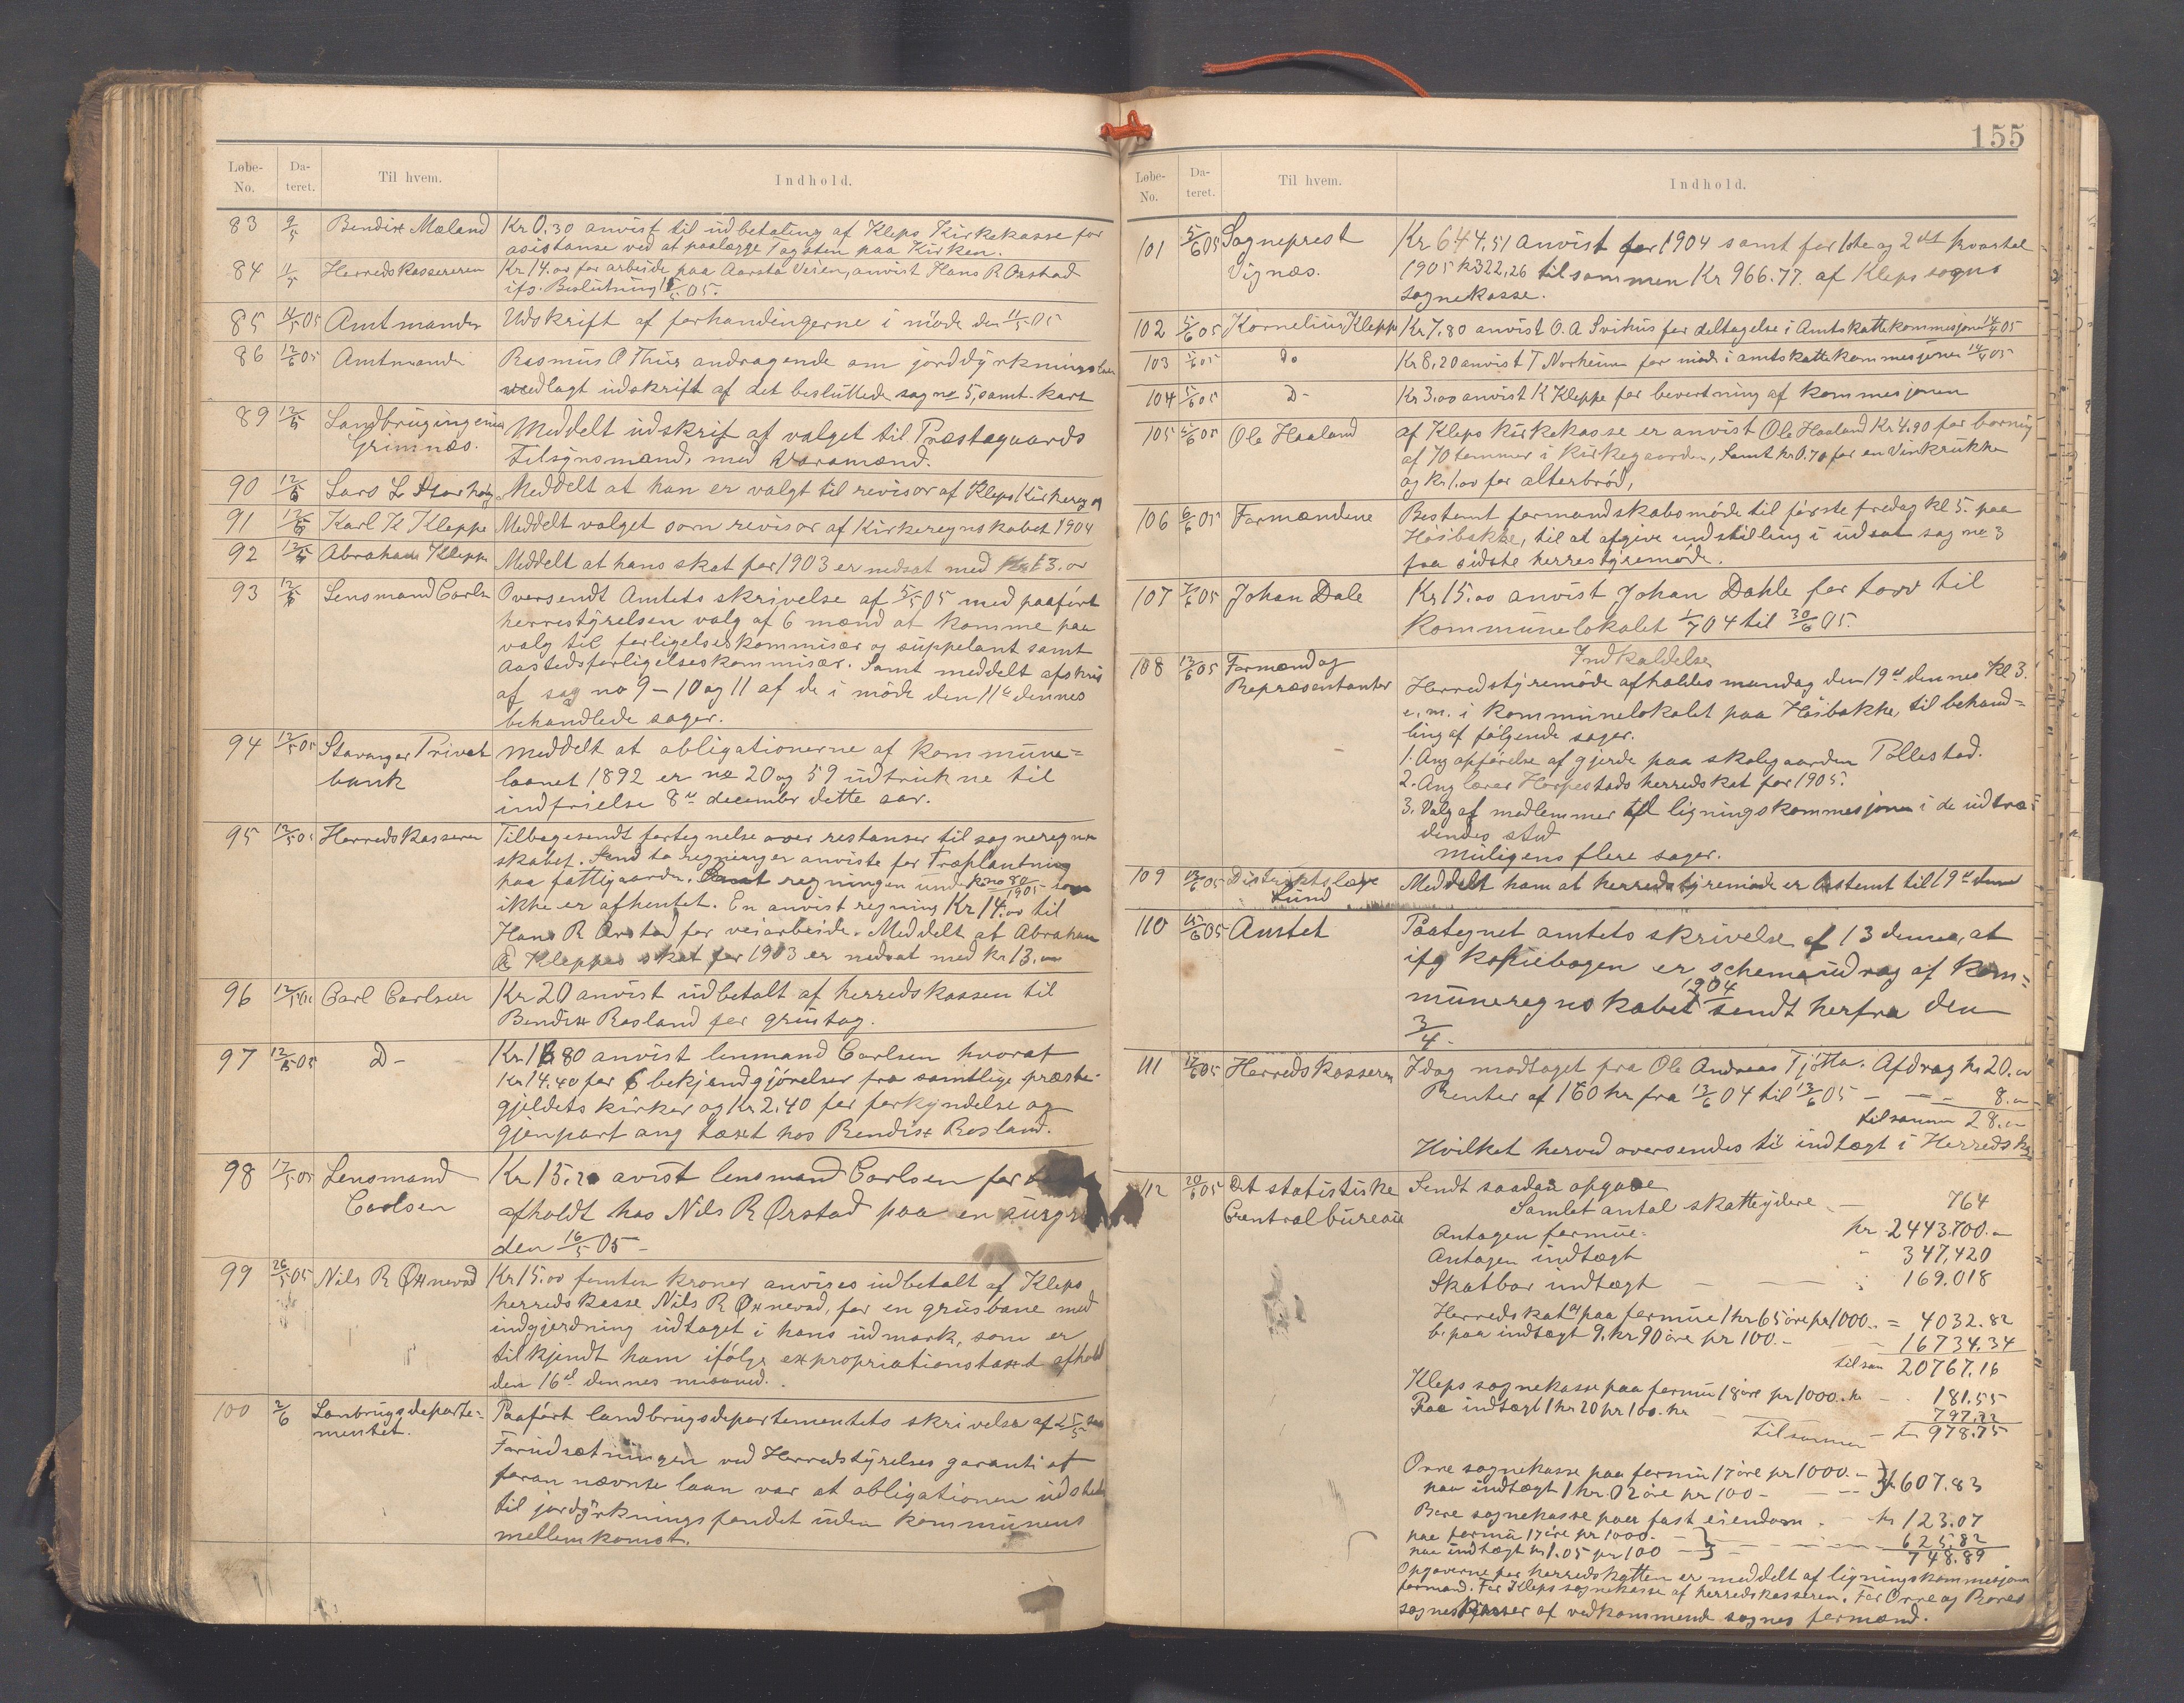 Løbe-No. Da-teret. Til hvem. Indhold.
83 9/5 Bendix Mæland Kr 0,30 anvist til udbetaling af Kleps Kirkekasse for
asistanse ved at paalægge Tagsten paa Kirken.
84 11/5 Herredskassereren Kr 14.00 for arbeide paa Aarsta Veien, anvist Hans R Orstad
ifg. Beslutning 11/5 05.
85 11/5 05 Amtmanden Udskrift af forhandingerne i møde den 11/5 05
86 12/5 05 Amtmanden Rasmus O Thus andragende om jorddyrkningslaan
vedlagt udskrift af det besluttede sag no 5, samt kart
89 12/5 Landbrugingeniør
Grimnæs. Meddelt udskrif af valget til Præstegaards
tilsynsmænd, med Varamænd.
90 12/5 Lars L Storhoug Meddelt at han er valgt til revisor af Kleps Kirkereg
91 12/5 Karl K Kleppe Meddelt valget som revisor af Kirkeregnskabet 1904
92 12/5 Abraham Kleppe Meddelt at hans skat for 1903 er nedsat med 13.00
93 12/5 Lensmand Carlsen Oversendt Amtets skrivelse af 5/5 05 med paaført
herrestyrelsen valg af 6 mænd at komme paa
valg til forligelseskommisær og suppelant samt
Aastedsforligelseskommisær. Samt meddelt afskrif
af sag no 9 – 10 og 11 af de i møde den 11te dennes
behandlede sager.
94 12/5 05 Stavanger Privat
bank Meddelt at obligationerne af kommune=
laanet 1892 er no 20 og 59 udtrukne til
indfrielse 8de december dette aar.
95 12/5 05 Herredskasseren Tilbagesendt fortegnelse over restanser til sogneregn
skabet. Send to regninger anviste for Træplantning
paa fattigaarden. Samt regningen under no 80/1905 som
ikke er afhentet. En anvist regning Kr 14.00 til
Hans R Orstad for veiarbeide. Meddelt at Abraham
Kleppes skat for 1903 er nedsat med kr 13.00
96 12/5 05 Carl Carlsen Kr 20 anvist udbetalt af herredskassen til
Bendix Rosland for grustag.
97 12/5 05 D– Kr 16 80 anvist lensmand Carlsen hvoraf
Kr 14.40 for 6 bekjendgjørelser fra samtlige præste-
gjeldets kirker og Kr 2,40 for forkyndelse og
gjenpart ang taxt hos Bendix Rosland.
98 17/5 05 Lensmand
Carlsen Kr 15.20 avist lensmand Carlsen for
afholdt hos Nils R Ørstad paa en
den 16/5 05 –
99 26/5 05 Nils R Øxnevad Kr 15.00 femten kroner anvises udbetalt af Kleps
herredskasse Nils R Øxnevad, for en grusbane med
indgjerdning udtaget i hans udmark, som er
tilkjendt ham ifølge expropriationstaxt afhold
den 16de dennes maaned.
100 2/6 Lanbrugsdeparte=
mentet. Paaført landbrugsdepartementets skrivelse af 25/5
Forudsætningen ved Herredstyrelses garanti af
foran nævnte laan var at obligationen udstedes
til jordyrkningsfondet uden kommunens
mellemkomst.
155
Løbe-No. Da-teret. Til hvem. Indhold.
101 5/6 05 Sogneprest
Vignæs. Kr 644,51 anvist for 1904 samt for 1ste og 2det kvartal
1905 kr 322,26 tilsammen Kr 966.77. af Klepsogns
sognekasse.
102 5/6 05 Kornelius Kleppe Kr 7.80 anvist O. A Svihus for deltagelse i Amtskattekommesjonen 14/4 05
103 5/6 05 Do Kr 8,20 anvist T Norheim for møde i amtskattekommesjonen 14/4 05
104 5/6 05 D– Kr 3.00 anvist K Kleppe for bevertning af kommesjonen
105 5/6 05 Ole Haaland af Kleps Kirkekasse er anvist Ole Haaland Kr 4.90 for boring
af 70 tommer i Kirkegaarden, Samt kr 0.70 for en Vinkrukke
og kr 1.00 for alterbrød,
106 6/6 05 Formændene Bestemt formandskabsmøde til første fredag kl 5. paa
Høibakke, til at afgive indstilling i udsat sag no 3
fra sidste herrestyremøde.
107 7/6 05 Johan Dale Kr 15.00 anvist Johan Dahle for torv til
kommunelokalet 1/7 04 til 30/6 05.
108 13/6 05 Formænd og
Repræsentanter Indkaldelse
Herredstyremøde afholdes mandag den 19de dennes Kl 3.
e.m. i kommunelokalet paa Høibakke, til behand=
ling af følgende sager.
1. Ang opførelse af gjerde paa skolegaarden Pollestad.
2. Ang lærer Horpestads herredskat for 1905.
3. Valg af medlemmer til ligningskommesjonen i de udtræ-
dendes sted
muligens flere sager.
109 13/6 05 Distriktslæge
Lund Meddelt ham at herredstyremøde er bestemt til 19de dennes
110 15/6 05 Amtet Paategnet amtets skrivelse af 13 dennes, at
ifg kopiebogen er schemaudrag af kom=
muneregnskabet 1904 sendt herfra den
3/4 –
111 17/6 05 Herredskasseren Idag modtaget fra Ole Andreas Tjøtta. Afdrag kr 20.00
Renter af 160 kr fra 13/6 04 til 13/6 05 – – – 8.00
tilsamn 28.00
Hvilket herved oversendes til indtægt i Herredsk
112 20/6 05 Det statistiske
Crentralbureau Sendt saadan opgave
Samlet antal skatteydere – 764
Antagen formue: kr 2443.700.00
Antagen indtægt " 347,420
Skatbar indtægt – – – : 169.018
Herredskat a) paa formue 1 kr 65 øre pr 1000.. = 4032.82
b. paa indtægt 9. kr 90 øre pr 100. – 16734.34
tilsan 20767.16
Kleps sognekasse paa formue 18 øre pr 1000. kr – 181.55
Paa indtægt 1 kr 20 pr 100. kr 797.22
Tilsammen – kr 978.75
Orre sognekasse paa formue 17 øre pr 1000. –
paa indtægt 1 kr. 02 øre pr 100 – – – – 607.83
Bore sognekasse paa fast eiendom. – kr 123.07
paa formue 17 øre pr 1000. –
paa indtægt kr 1.05 pr 100 – – – – 625.82
748.89
Opgaverne for herredskatten er meddelt af ligningskommesjonens
formand. For Kleps sognekasse af herredskasseren. For Orre og Bores
sognekasser af vedkommende sognes formænd.